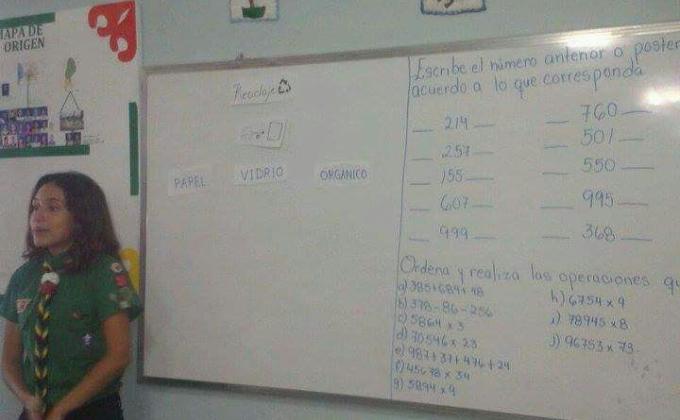 MAPA DE
ORIGEN
Reciclaje
PAPEL
VIDRIO
ORGANICO
Escribe el número anterior o poster
acuerdo a lo que corresponda
__ 214 __
__ 257 __
__ 155 __
__ 607 __
__ 999 __
__ 760 __
__ 501 __
__ 550 __
__ 995 __
__ 368 __
Ordena y realiza las operaciones qu
a) 385+689+48
b) 378-86-256
c) 5864 x 3
d) 70546 x 23
e) 987+37+476+24
f) 45678 x 34
g) 5894 x 9
h) 6754 x 9
i) 78945 x 8
j) 96753 x 73